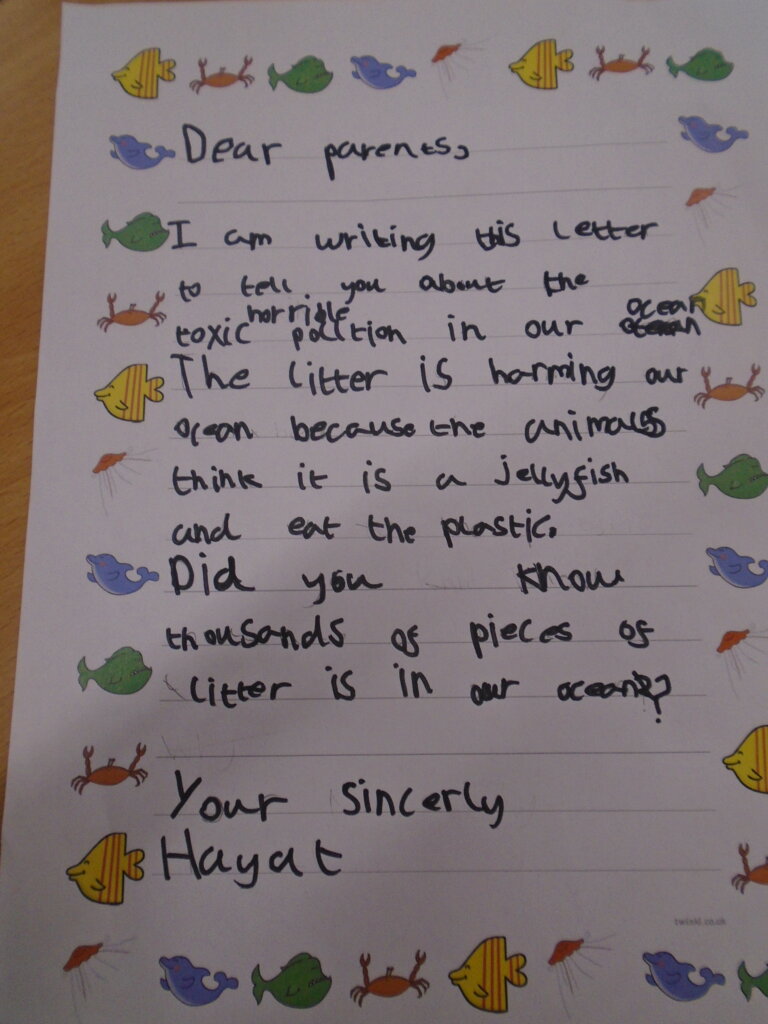 Dear parents,
I am writing this letter
to tell you about the
horrible ocean
toxic polltion in our ocean
The litter is harming our
ocean because the animals
think it is a jellyfish
and eat the plastic.
Did you know
thousands of pieces of
litter is in our ocean?
Your sincerly
Hayat
twinkl.co.uk